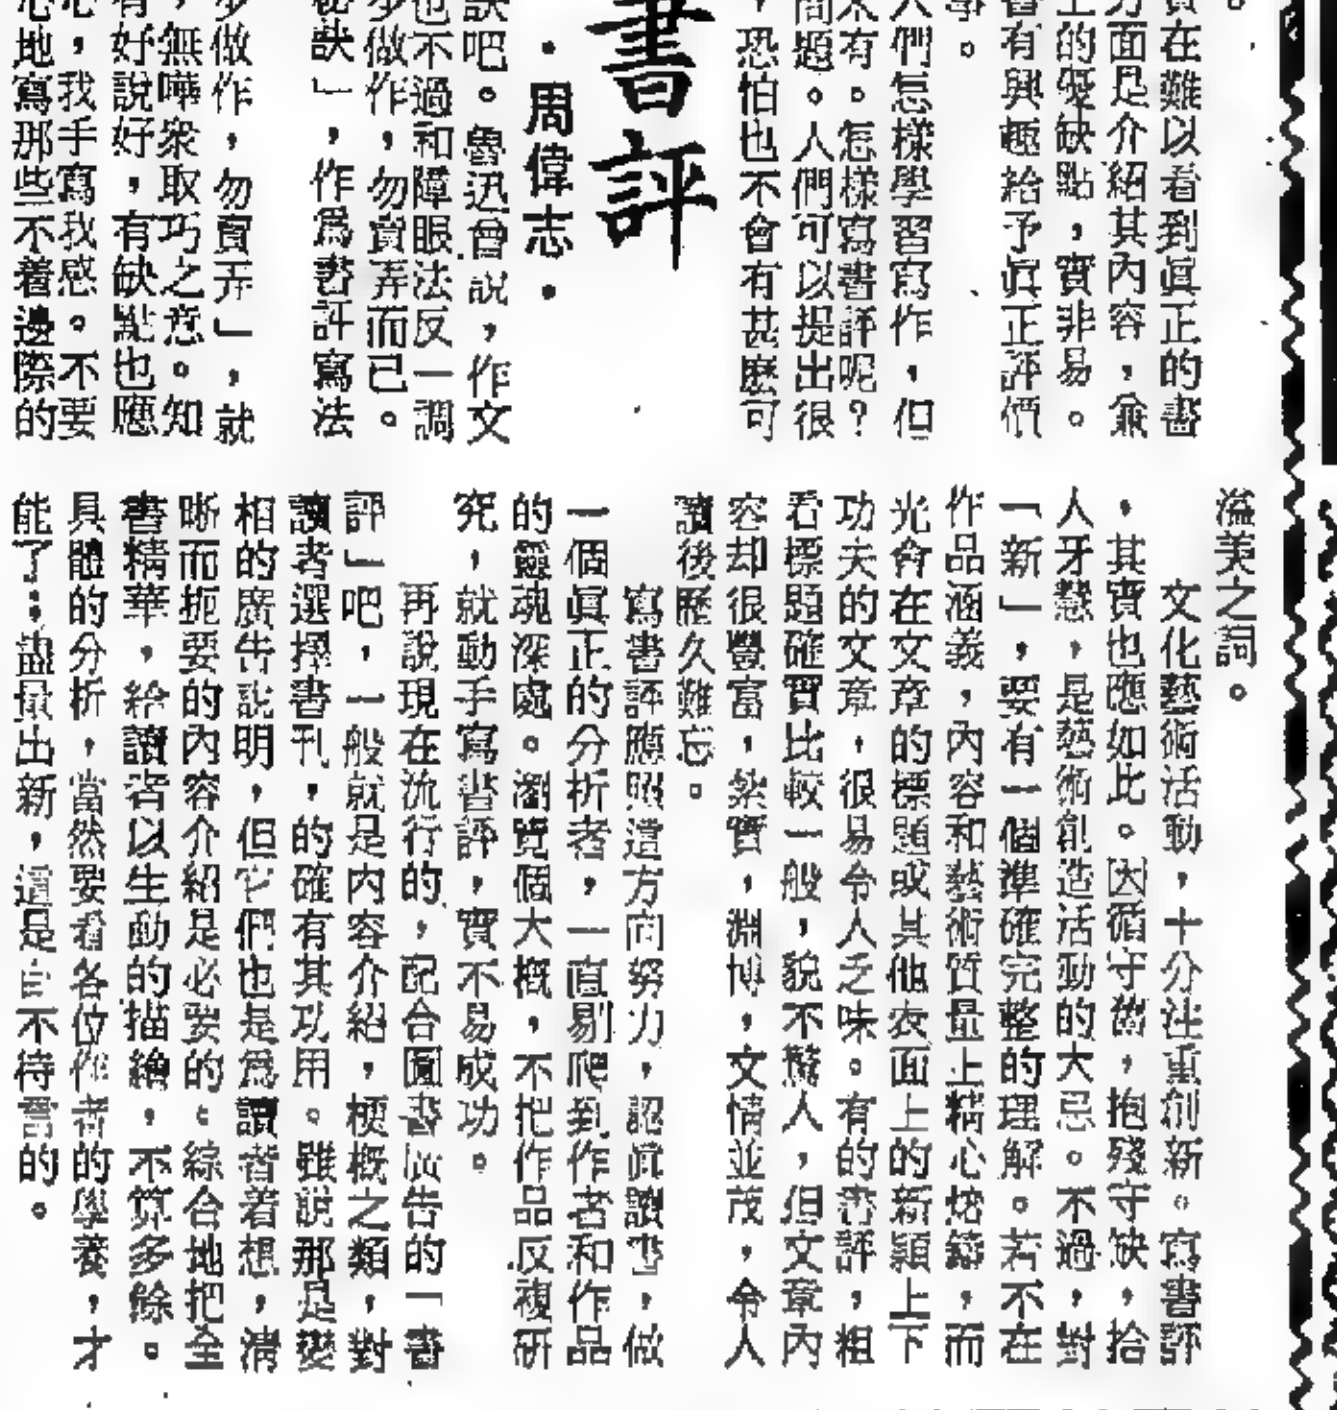 。
實在難以看到眞正的書
方面是介紹其內容，兼
上的優缺點，實非易。
書有興趣給予眞正評價
事。
人們怎樣學習寫作，但
未有。怎樣寫書評呢？
問題。人們可以提出很
，恐怕也不會有甚麽可
書評
・周偉志・
訣吧。魯迅曾說，作文
也不過和障眼法反一調
多做作，勿賣弄而已。
秘訣」，作爲書評寫法
多做作，勿賣弄」，就
，無嘩衆取巧之意。知
有好說好，有缺點也應
心，我手寫我感。不要
心地寫那些不着邊際的
溢美之詞。
文化藝術活動，十分注重創新。寫書評
，其實也應如此。因循守舊，抱殘守缺，拾
人牙慧，是藝術創造活動的大忌。不過，對
「新」，要有一個準確完整的理解。若不在
作品涵義，內容和藝術質量上精心熔鑄，而
光會在文章的標題或其他表面上的新穎上下
功夫的文章，很易令人乏味。有的書評，粗
看標題確實比較一般，貌不驚人，但文章內
容却很豐富，紮實，淵博，文情並茂，令人
讀後歷久難忘。
寫書評應照這方向努力，認眞讀書，做
一個眞正的分析者，一直剔爬到作者和作品
的靈魂深處。瀏覽個大概，不把作品反複硏
究，就動手寫書評，實不易成功。
再說現在流行的，配合圖書廣告的「書
評」吧，一般就是內容介紹，梗概之類，對
讀者選擇書刊，的確有其功用。雖說那是變
相的廣告說明，但它們也是爲讀者着想，淸
晰而扼要的內容介紹是必要的。綜合地把全
書精華，給讀者以生動的描繪，不算多餘。
具體的分析，當然要看各位作者的學養，才
能了；盡量出新，這是自不待言的。